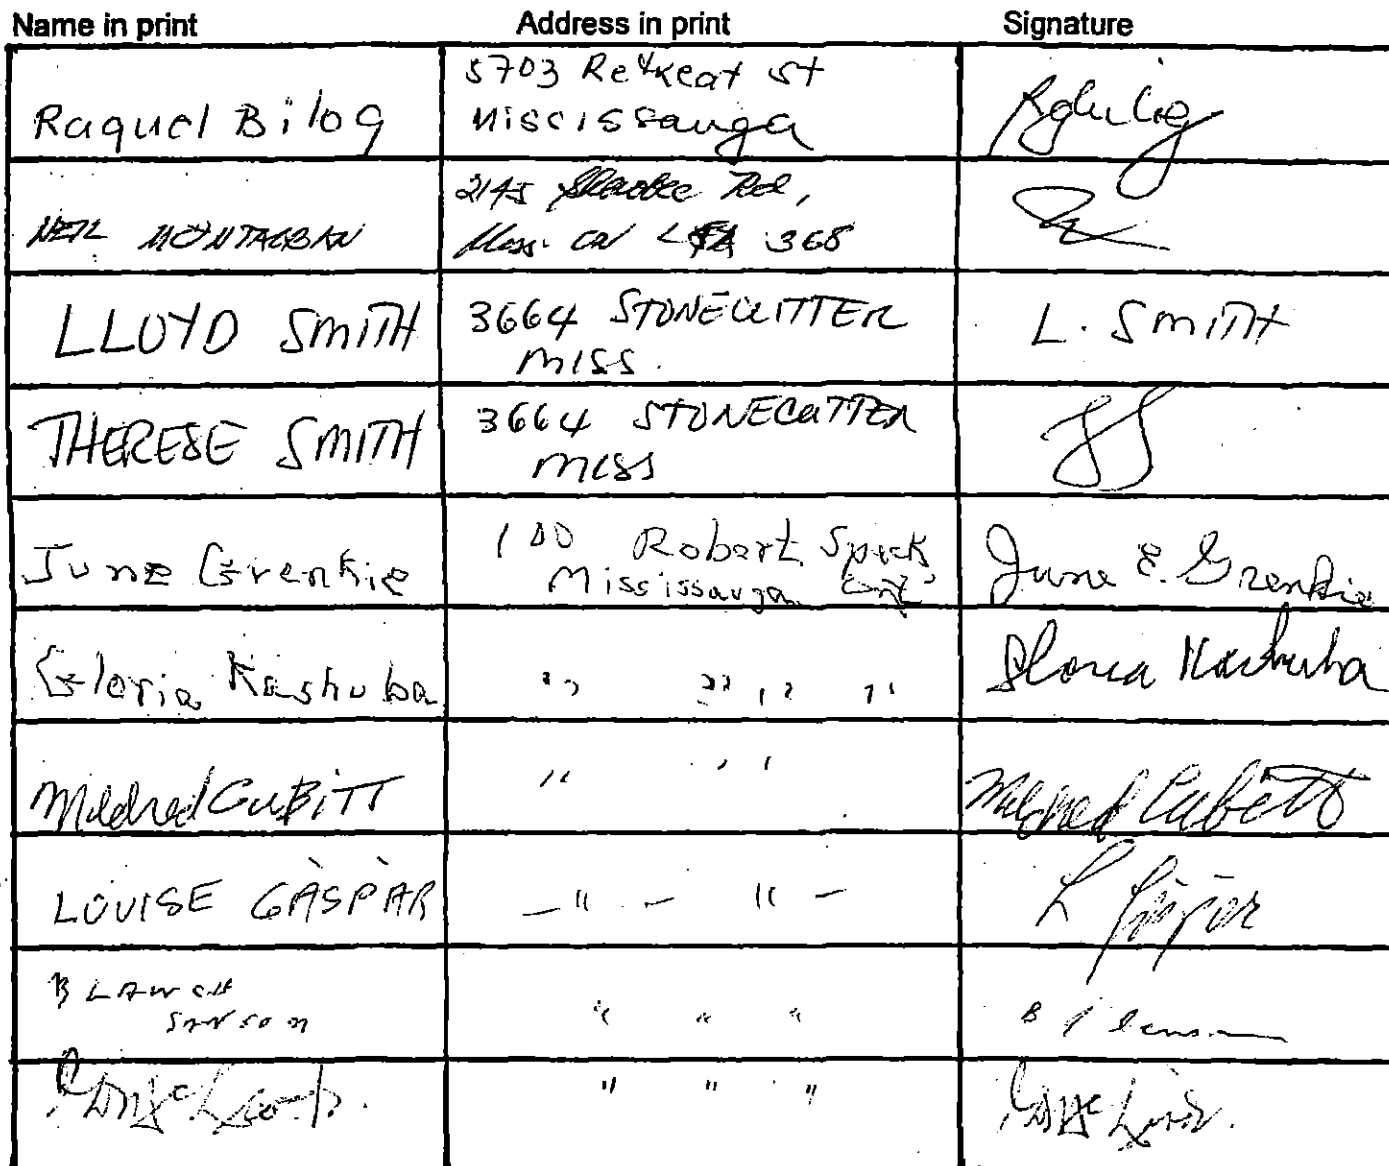 Name in print Address in print Signature
Raquel Bilog 5703 Retreat St
Miscissauga
NEIL MONTALBAN 2145 Rd,
Miss. ON 3G8
LLOYD SMITH 3664 STONECUTTER L. SMITH
MISS.
THERESE SMITH 3664 STONECUTTER
MISS
June Grenkie 100 Robert Speck June E. Grenkie
Mississauga Ont
Gloria Kashuba " " " " Gloria Kashuba
Mildred CuBiTT " " Mildred Cubitt
LOUISE GASPAR — " — " — L Gaspar
BLANCH " " "
SANSON
" " "